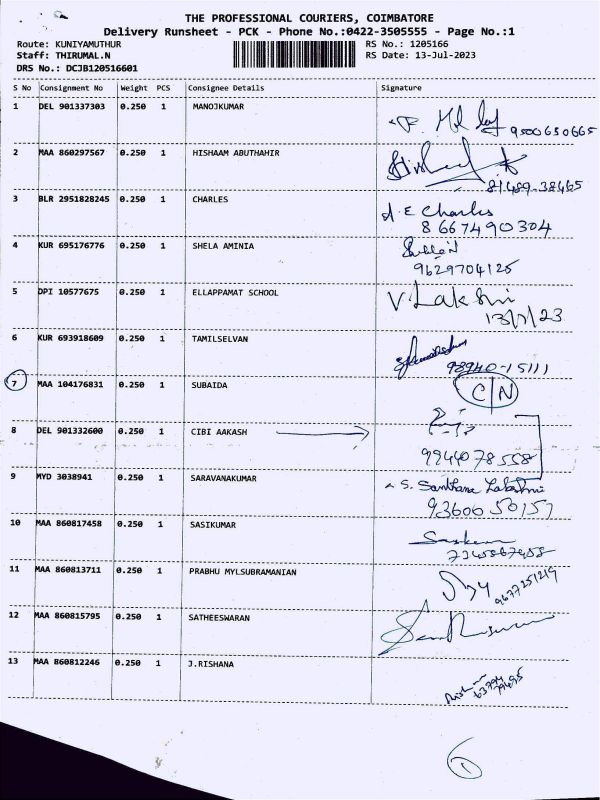 THE PROFESSIONAL COURIERS, COIMBATORE
Delivery Runsheet - PCK - Phone No.:0422-3505555 - Page No.:1
Route: KUNIYAMUTHUR RS No.: 1205166
Staff: THIRUMAL.N RS Date: 13-Jul-2023
DRS No.: DCJB120516601
S No Consignment No Weight PCS Consignee Details Signature
1 DEL 901337303 0.250 1 MANOJKUMAR
9500650665
2 MAA 860297567 0.250 1 HISHAAM ABUTHAHIR
81489-38465
3 BLR 2951828245 0.250 1 CHARLES A.E Charles
8667490304
4 KUR 695176776 0.250 1 SHELA AMINIA
9629704125
5 DPI 10577675 0.250 1 ELLAPPAMAT SCHOOL V. Lakshmi
13/7/23
6 KUR 693918609 0.250 1 TAMILSELVAN
98940-15111
7 MAA 104176831 0.250 1 SUBAIDA C/N
8 DEL 901332600 0.250 1 CIBI AAKASH
9944078558
9 MYD 3038941 0.250 1 SARAVANAKUMAR S. Santhana Lakshmi
9360050157
10 MAA 860817458 0.250 1 SASIKUMAR
11 MAA 860813711 0.250 1 PRABHU MYLSUBRAMANIAN
9677251219
12 MAA 860815795 0.250 1 SATHEESWARAN
13 MAA 860812246 0.250 1 J.RISHANA